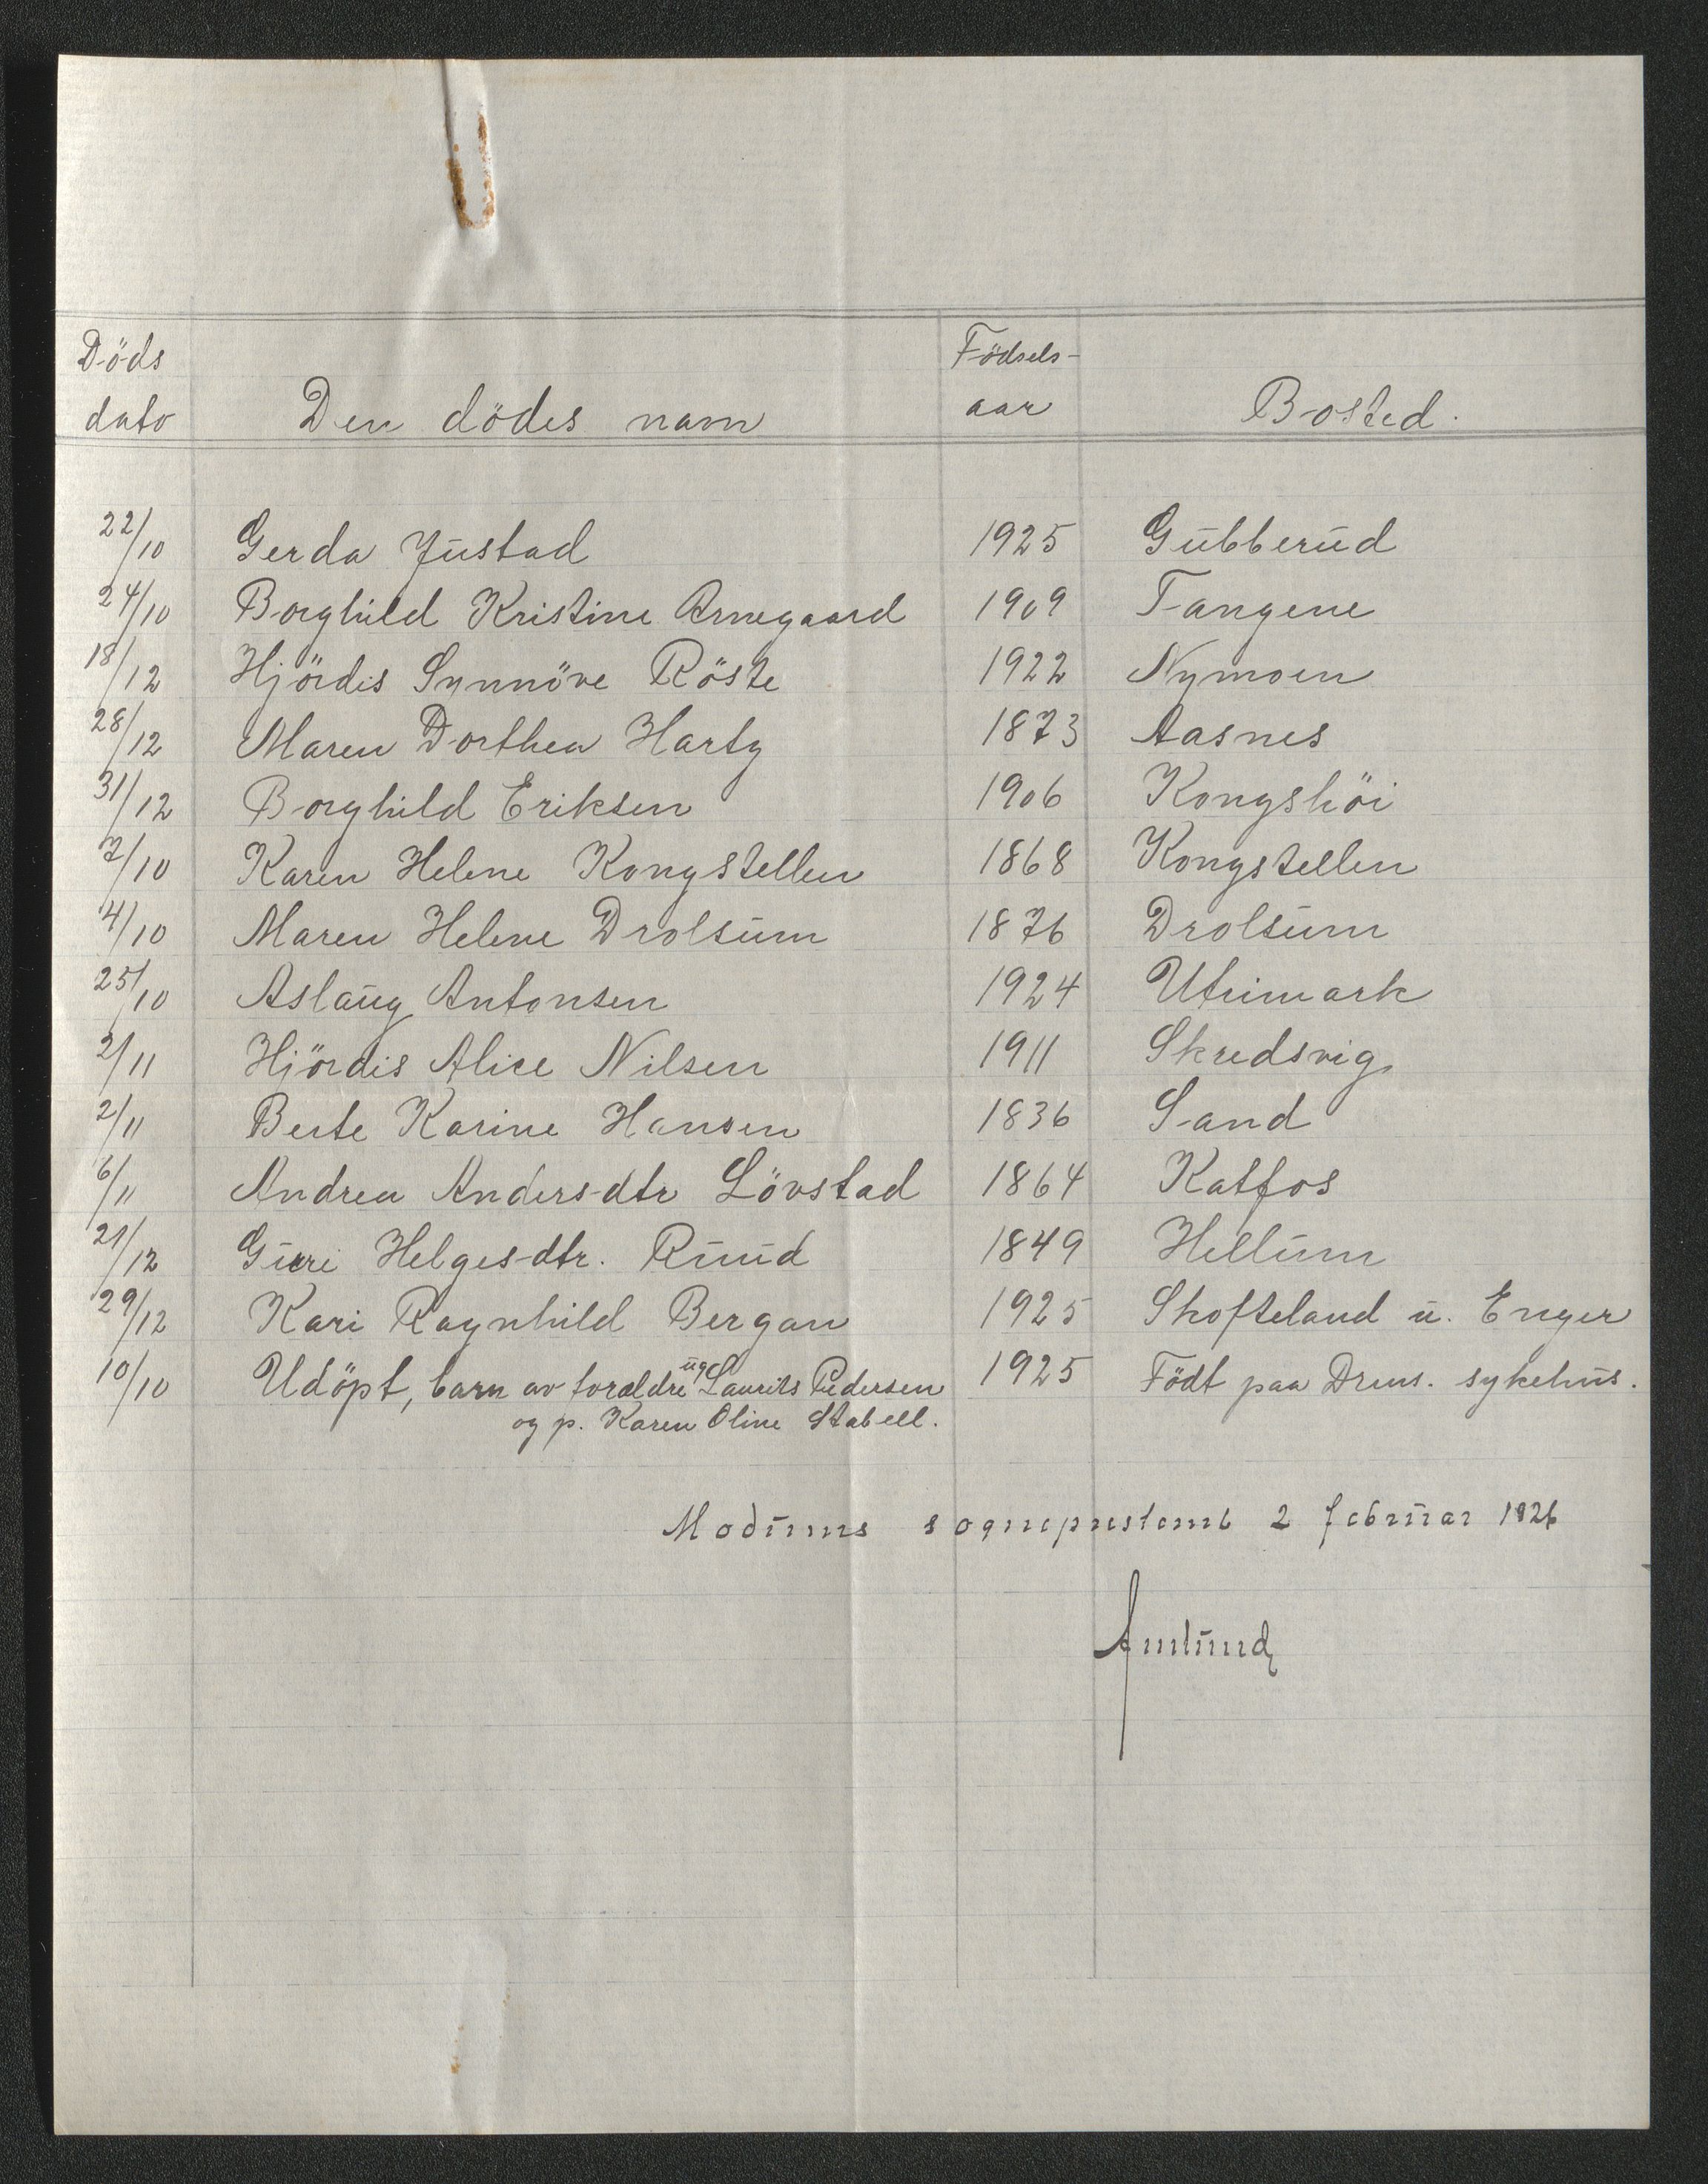 Döds Födsels-
dato Den dödes navn aar Bosted.
22/10 Gerda Justad 1925 Gubberud
24/10 Borghild Kristine Arnegaard 1909 Tangene
18/12 Hjördis Synnöve Röste 1922 Nymoen
28/12 Maren Dorthea Hartz 1873 Aasnes
31/12 Borghild Eriksen 1906 Kongshöi
7/10 Karen Helene Kongstellen 1868 Kongstellen
4/10 Maren Helene Drolsum 1876 Drolsum
25/10 Aslaug Antonsen 1924 Utrimark
2/11 Hjördis Alice Nilsen 1911 Skredsvig
2/11 Berte Karine Hansen 1836 Sand
6/11 Andrea Anders-dtr Lövstad 1864 Katfos
21/12 Guri Helges-dtr. Ruud 1849 Hellum
29/12 Kari Ragnhild Bergan 1925 Skofteland u. Enger
10/10 Udöpt, barn av foraldre ug Laurits Pedersen 1925 Födt paa Drms. sykehus.
og p. Karen Oline Stabell.
Modums sogneprestemb 2 februar 1926
Amlund